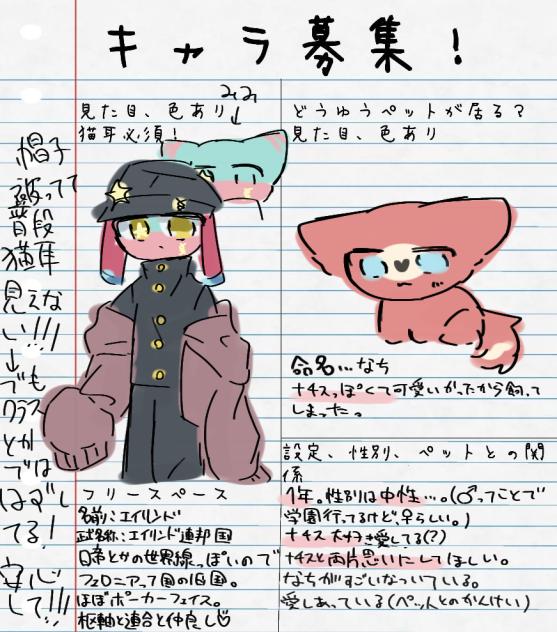 キャラ募集!
みみ
見た目、色あり
猫耳必須!
どうゆうペットが居る?
見た目、色あり
帽子
被ってて
普段
猫耳
見えな
い!!!
でも
クラス
とか
では
はずし
てる!
安心
して!!!
命名…なち
ナチスっぽくて可愛いかったから飼って
しまった。
設定、性別、ペットとの関
係
1年。性別は中性…。(♂ってことで
学園行ってるけど、早らしい。)
ナチス大好き愛してる(?)
ナチスと両片思いにしてほしい。
なちがすごいなついている。
愛しあっている(ペットとのかんけい)
フリースペース
名前:エイルンド
正式名称:エイルンド連邦国
日帝とかの世界線っぽいので
フェロニアって国の旧国。
ほぼポーカーフェイス。
枢軸と連合と仲良し♡